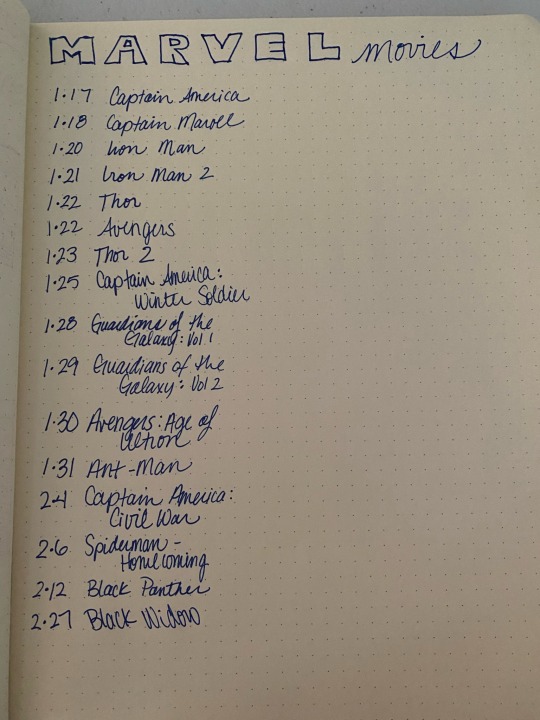 MARVEL movies
1.17 Captain America
1.18 Captain Marvel
1.20 Iron Man
1.21 Iron Man 2
1.22 Thor
1.22 Avengers
1.23 Thor 2
1.25 Captain America:
Winter Soldier
1.28 Guardians of the
Galaxy: Vol 1
1.29 Guardians of the
Galaxy: Vol 2
1.30 Avengers: Age of
Ultron
1.31 Ant-Man
2.4 Captain America:
Civil War
2.6 Spiderman -
Homecoming
2.12 Black Panther
2.27 Black Widow